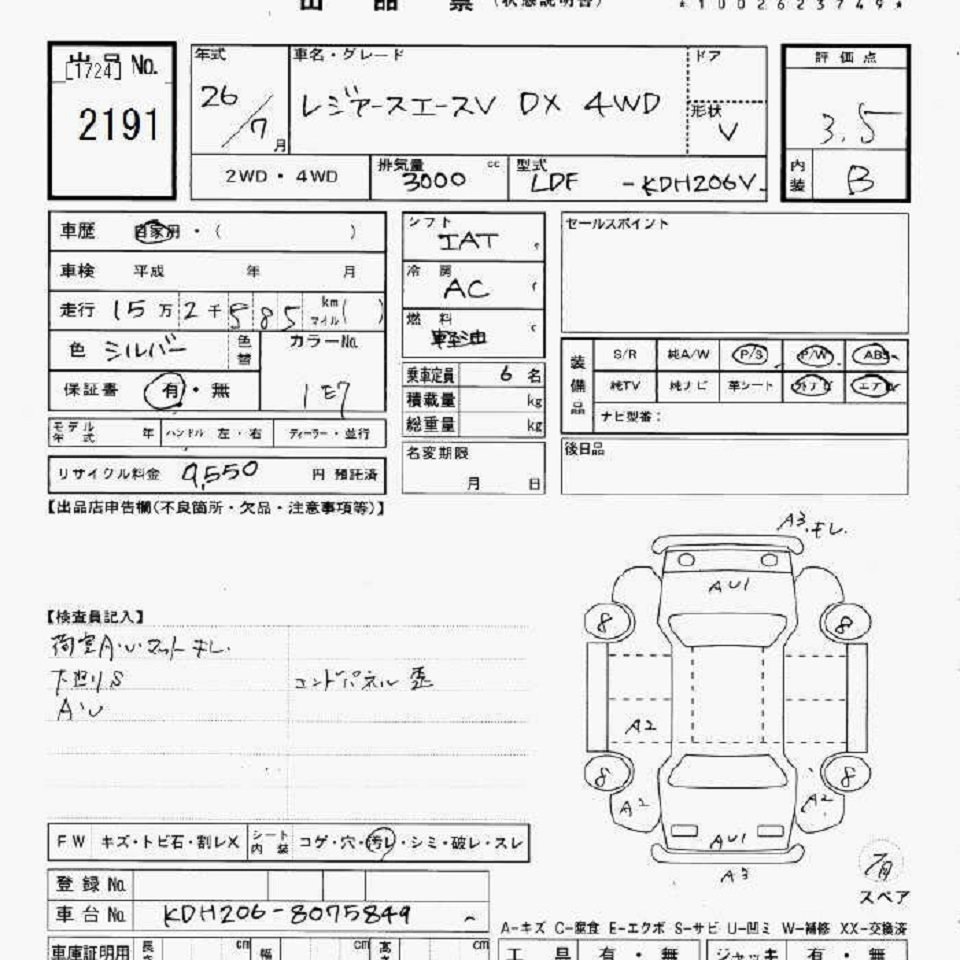 出品票 (状態説明書) *1002623749*
出品 No.
[1724]
2191
年式
26/7月
車名・グレード
レジアースエースV DX 4WD
ドア
形状
V
評価点
3.5
内装 B
2WD・4WD
排気量 3000 cc
型式 LDF -KDH206V
車歴 自家用・( )
車検 平成 年 月
走行 15万2千585 km マイル( )
色 シルバー 色替
カラーNo.
1E7
保証書 有・無
モデル年式 年 ハンドル 左・右 ディーラー・並行
リサイクル料金 9,550 円 預託済
シフト
IAT
冷房
AC
燃料
軽油
乗車定員 6 名
積載量 kg
総重量 kg
名変期限
月 日
セールスポイント
装備品
S/R 純A/W P/S P/W ABS
純TV 純ナビ 革シート 外ナビ エアB
ナビ型番:
後日品
【出品店申告欄(不良箇所・欠品・注意事項等)】
【検査員記入】
荷室A・U マット キレ.
下廻りS エンドパネル 歪
A・U
A3.キレ.
AU1
8 8
A2
8 8
A2 A2
AU1
A3
スペア
FW キズ・トビ石・割レX シート内装 コゲ・穴・汚レ・シミ・破レ・スレ
登録No.
車台No. KDH206-8075849
A-キズ C-腐食 E-エクボ S-サビ U-凹ミ W-補修 XX-交換済
車庫証明用 長さ cm 幅 cm 高さ cm
工具 有・無 ジャッキ 有・無